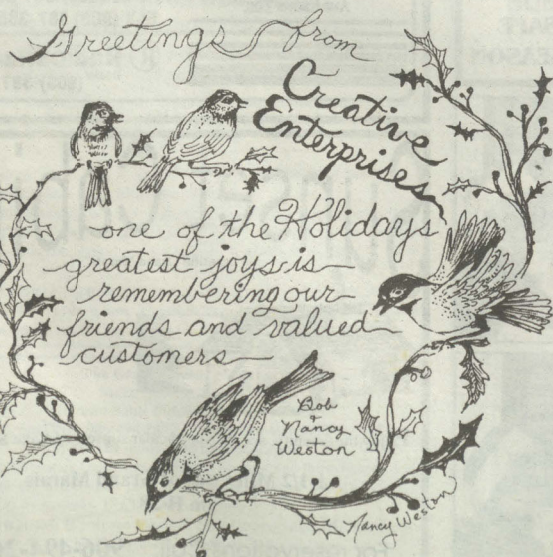 Greetings from
Creative
Enterprises
one of the Holidays
greatest joys is
remembering our
friends and valued
customers
Bob
+
Nancy
Weston
Nancy Weston